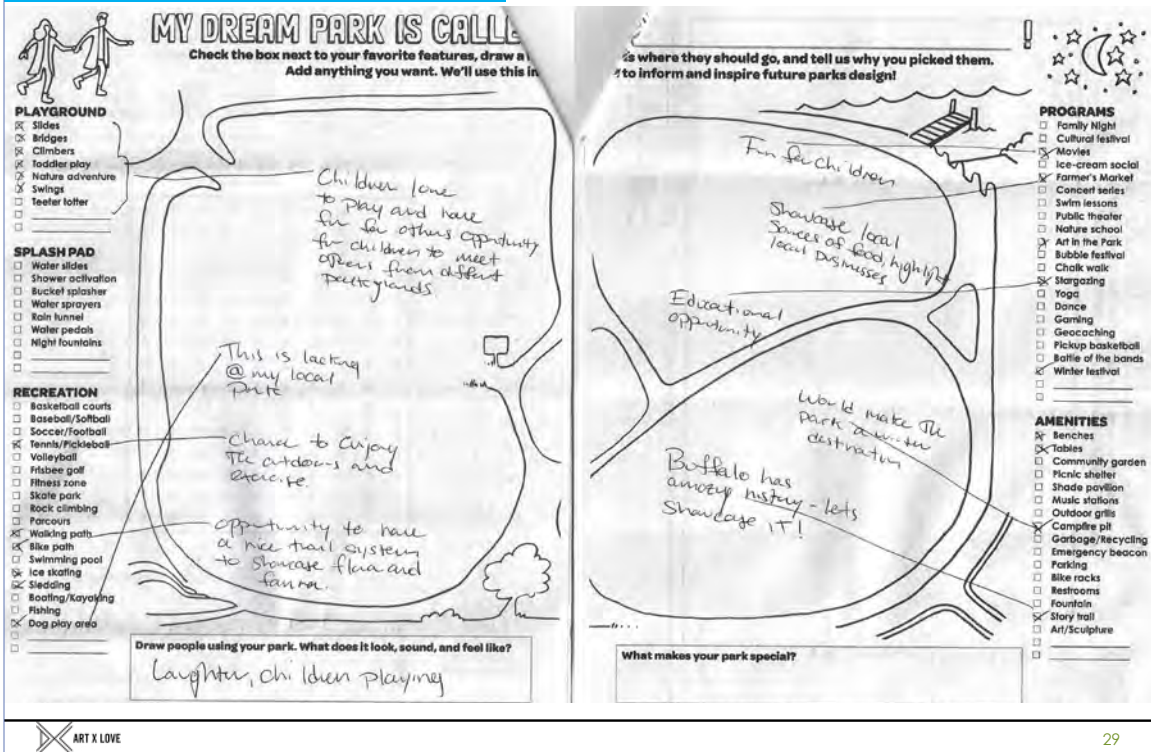 MY DREAM PARK IS CALLE
!
Check the box next to your favorite features, draw a
s where they should go, and tell us why you picked them.
Add anything you want. We'll use this in
to inform and inspire future parks design!
PLAYGROUND
Slides
Bridges
Climbers
Toddler play
Nature adventure
Swings
Teeter totter
SPLASH PAD
Water slides
Shower activation
Bucket splasher
Water sprayers
Rain tunnel
Water pedals
Night fountains
RECREATION
Basketball courts
Baseball/Softball
Soccer/Football
Tennis/Pickleball
Volleyball
Frisbee golf
Fitness zone
Skate park
Rock climbing
Parcours
Walking path
Bike path
Swimming pool
Ice skating
Sledding
Boating/Kayaking
Fishing
Dog play area
Children love
to play and have
fun for others opportunity
for children to meet
others from different
This is lacking
@ my local
Chance to enjoy
The outdoors and
exercise
opportunity to have
a nice trail system
to showcase flora and
Draw people using your park. What does it look, sound, and feel like?
Laughter, children playing
Fun for children
Showcase local
of food, highlight
local businesses
Educational
opportunity
Would make The
park a winter
destination
Buffalo has
amazing history - lets
Showcase IT!
What makes your park special?
PROGRAMS
Family Night
Cultural festival
Movies
Ice-cream social
Farmer's Market
Concert series
Swim lessons
Public theater
Nature school
Art in the Park
Bubble festival
Chalk walk
Stargazing
Yoga
Dance
Gaming
Geocaching
Pickup basketball
Battle of the bands
Winter festival
AMENITIES
Benches
Tables
Community garden
Picnic shelter
Shade pavilion
Music stations
Outdoor grills
Campfire pit
Garbage/Recycling
Emergency beacon
Parking
Bike racks
Restrooms
Fountain
Story trail
Art/Sculpture
ART X LOVE
29